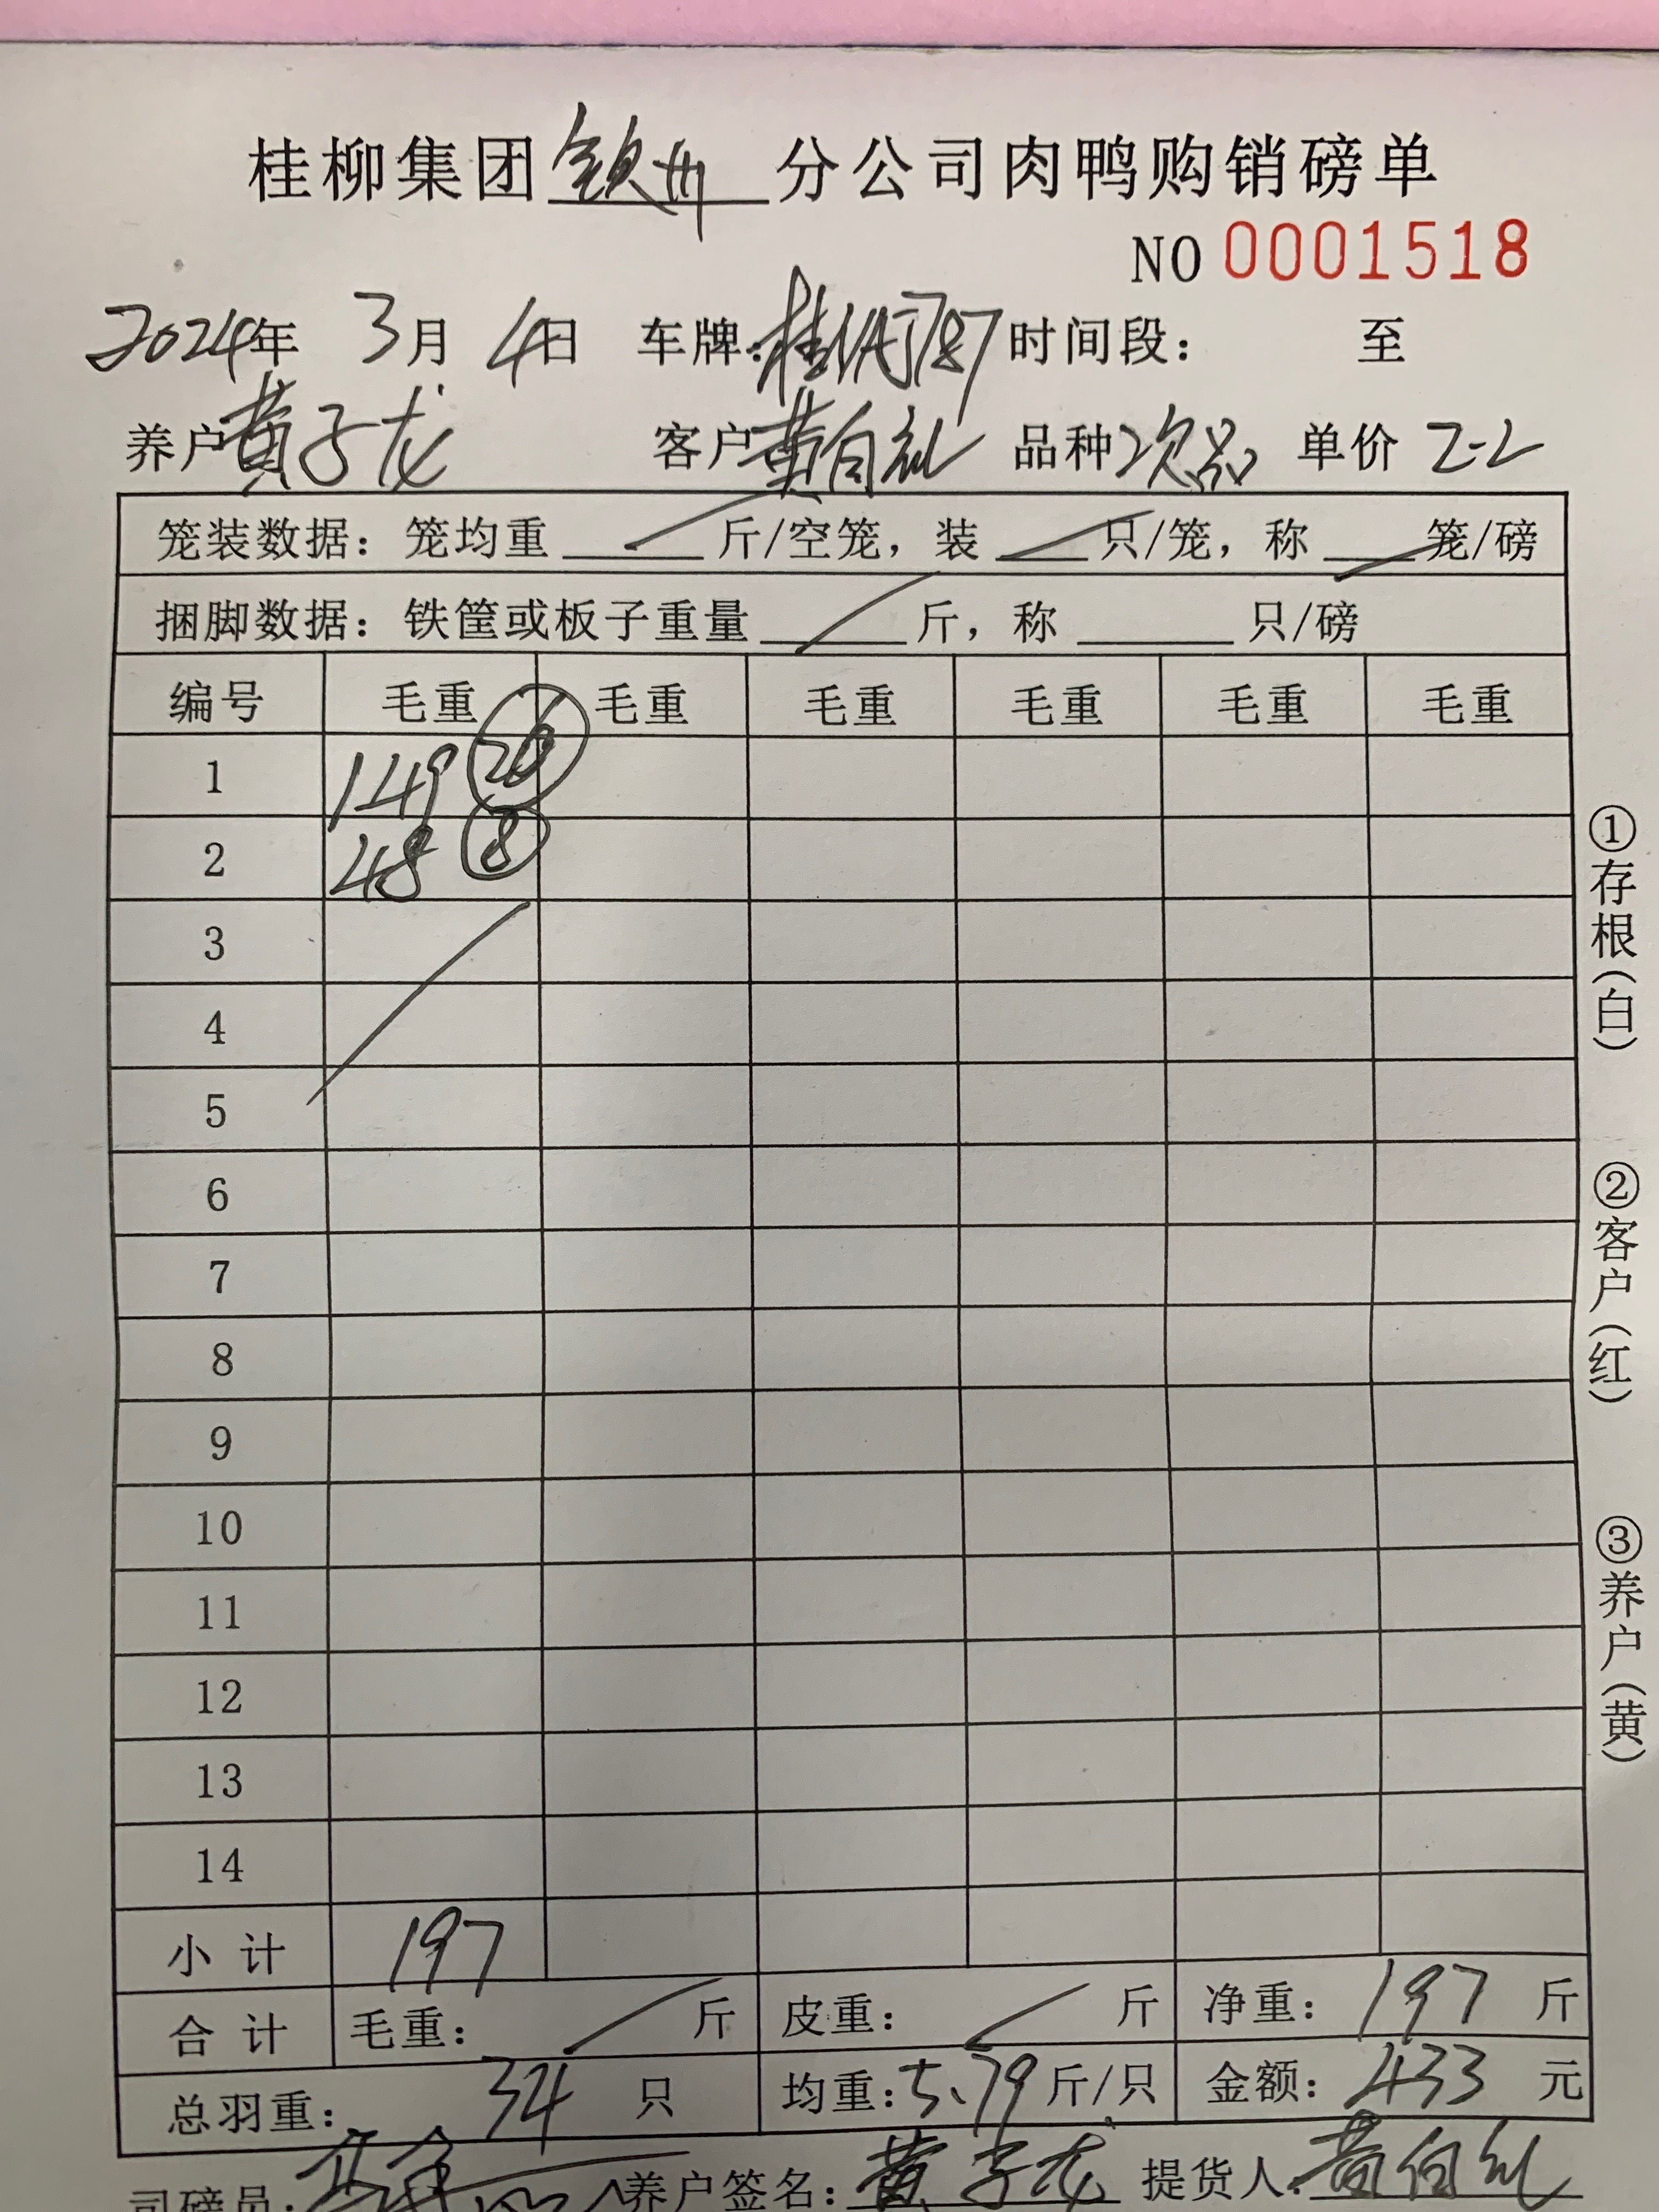 桂柳集团 钦州 分公司肉鸭购销磅单
NO 0001518
2024年 3月 4日 车牌: 时间段: 至
养户 黄子龙 客户 黄 品种 次品 单价 2-2
笼装数据: 笼均重 斤/空笼, 装 只/笼, 称 笼/磅
捆脚数据: 铁筐或板子重量 斤, 称 只/磅
编号 毛重 毛重 毛重 毛重 毛重 毛重
1 149 26
2 48 8
3
4
5
6
7
8
9
10
11
12
13
14
小计 197
合计 毛重: 斤 皮重: 斤 净重: 197 斤
总羽重: 34 只 均重: 5.79 斤/只 金额: 433 元
司磅员: 养户签名: 黄子龙 提货人: 黄
①存根(白)
②客户(红)
③养户(黄)